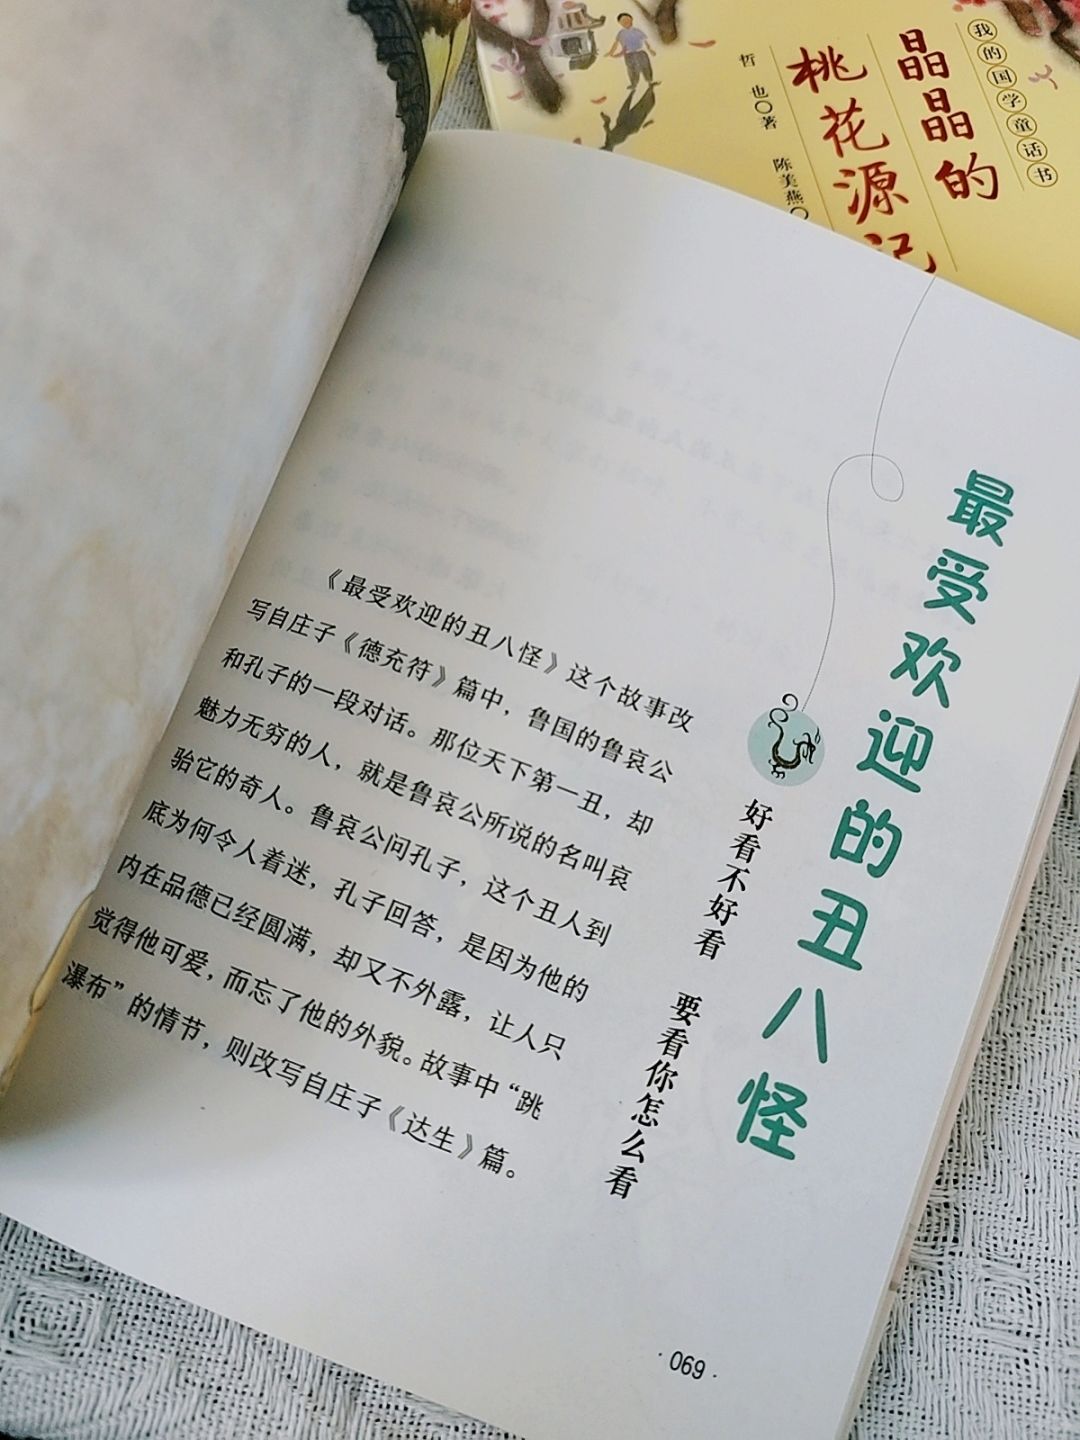 我的国学童话书
晶晶的
桃花源记
哲也○著
陈美燕○
最受欢迎的丑八怪
好看不好看 要看你怎么看
《最受欢迎的丑八怪》这个故事改
写自庄子《德充符》篇中，鲁国的鲁哀公
和孔子的一段对话。那位天下第一丑，却
魅力无穷的人，就是鲁哀公所说的名叫哀
骀它的奇人。鲁哀公问孔子，这个丑人到
底为何令人着迷，孔子回答，是因为他的
内在品德已经圆满，却又不外露，让人只
觉得他可爱，而忘了他的外貌。故事中“跳
瀑布”的情节，则改写自庄子《达生》篇。
·069·